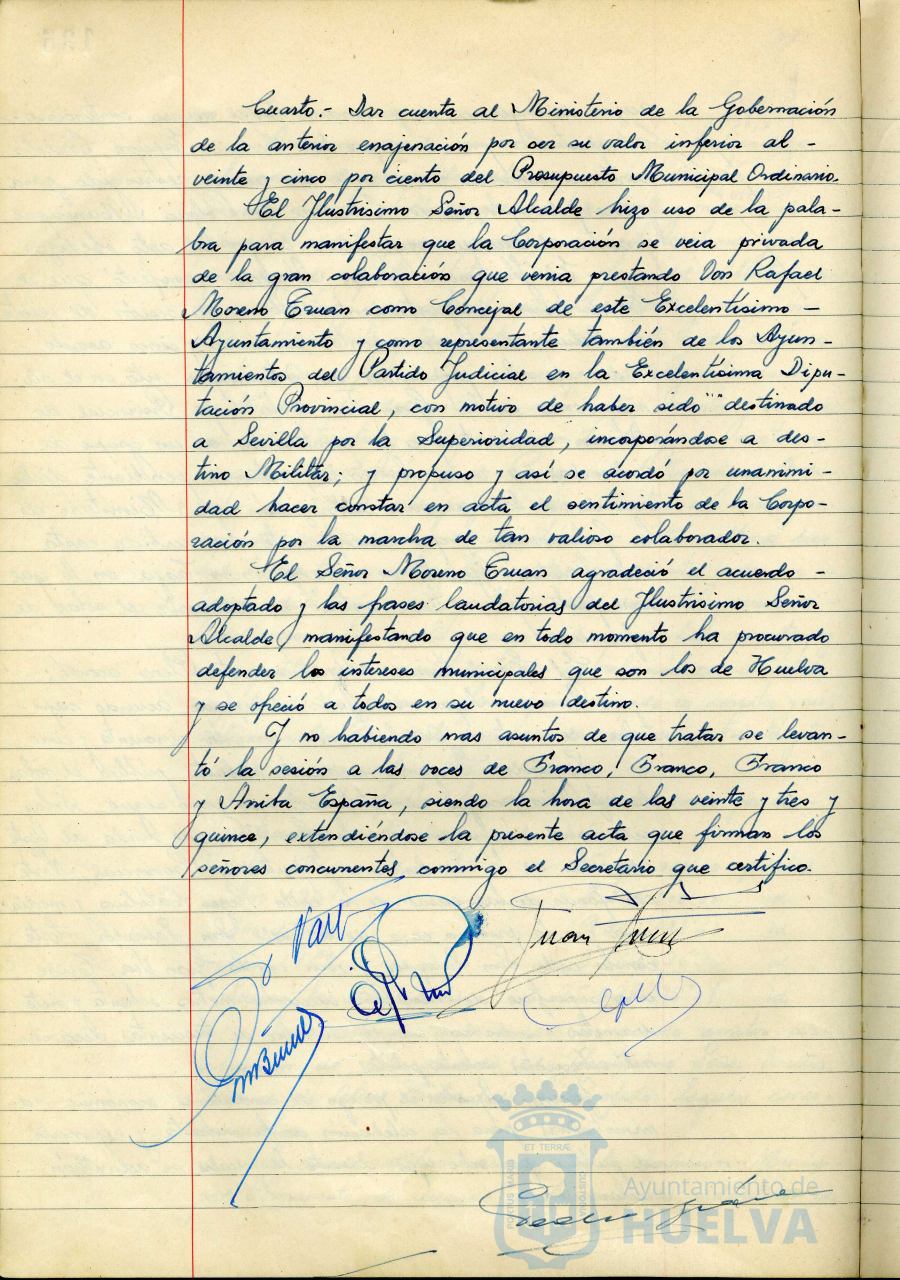 Cuarto.- Dar cuenta al Ministerio de la Gobernación
de la anterior enajenación por ser su valor inferior al -
veinte y cinco por ciento del Presupuesto Municipal Ordinario.
El Ilustrisimo Señor Alcalde hizo uso de la pala-
bra para manifestar que la Corporación se veia privada
de la gran colaboración que venia prestando Don Rafael
Moreno Truan como Concejal de este Excelentísimo -
Ayuntamiento y como representante también de los Ayun-
tamientos del Partido Judicial en la Excelentísima Dipu-
tación Provincial, con motivo de haber sido destinado
a Sevilla por la Superioridad, incorporándose a des-
tino Militar; y propuso y así se acordó por unanimi-
dad hacer constar en acta el sentimiento de la Corpo-
ración por la marcha de tan valioso colaborador.
El Señor Moreno Truan agradeció el acuerdo -
adoptado y las frases laudatorias del Ilustrisimo Señor
Alcalde manifestando que en todo momento ha procurado
defender los intereses municipales que son los de Huelva
y se ofreció a todos en su nuevo destino.
Y no habiendo mas asuntos de que tratar se levan-
tó la sesión a las voces de Franco, Franco, Franco
y Arriba España, siendo la hora de las veinte y tres y
quince, extendiéndose la presente acta que firman los
señores concurrentes conmigo el Secretario que certifico.
Juan
ET TERRÆ
PORTUS MARIS
CUSTODIA
Ayuntamiento de
HUELVA